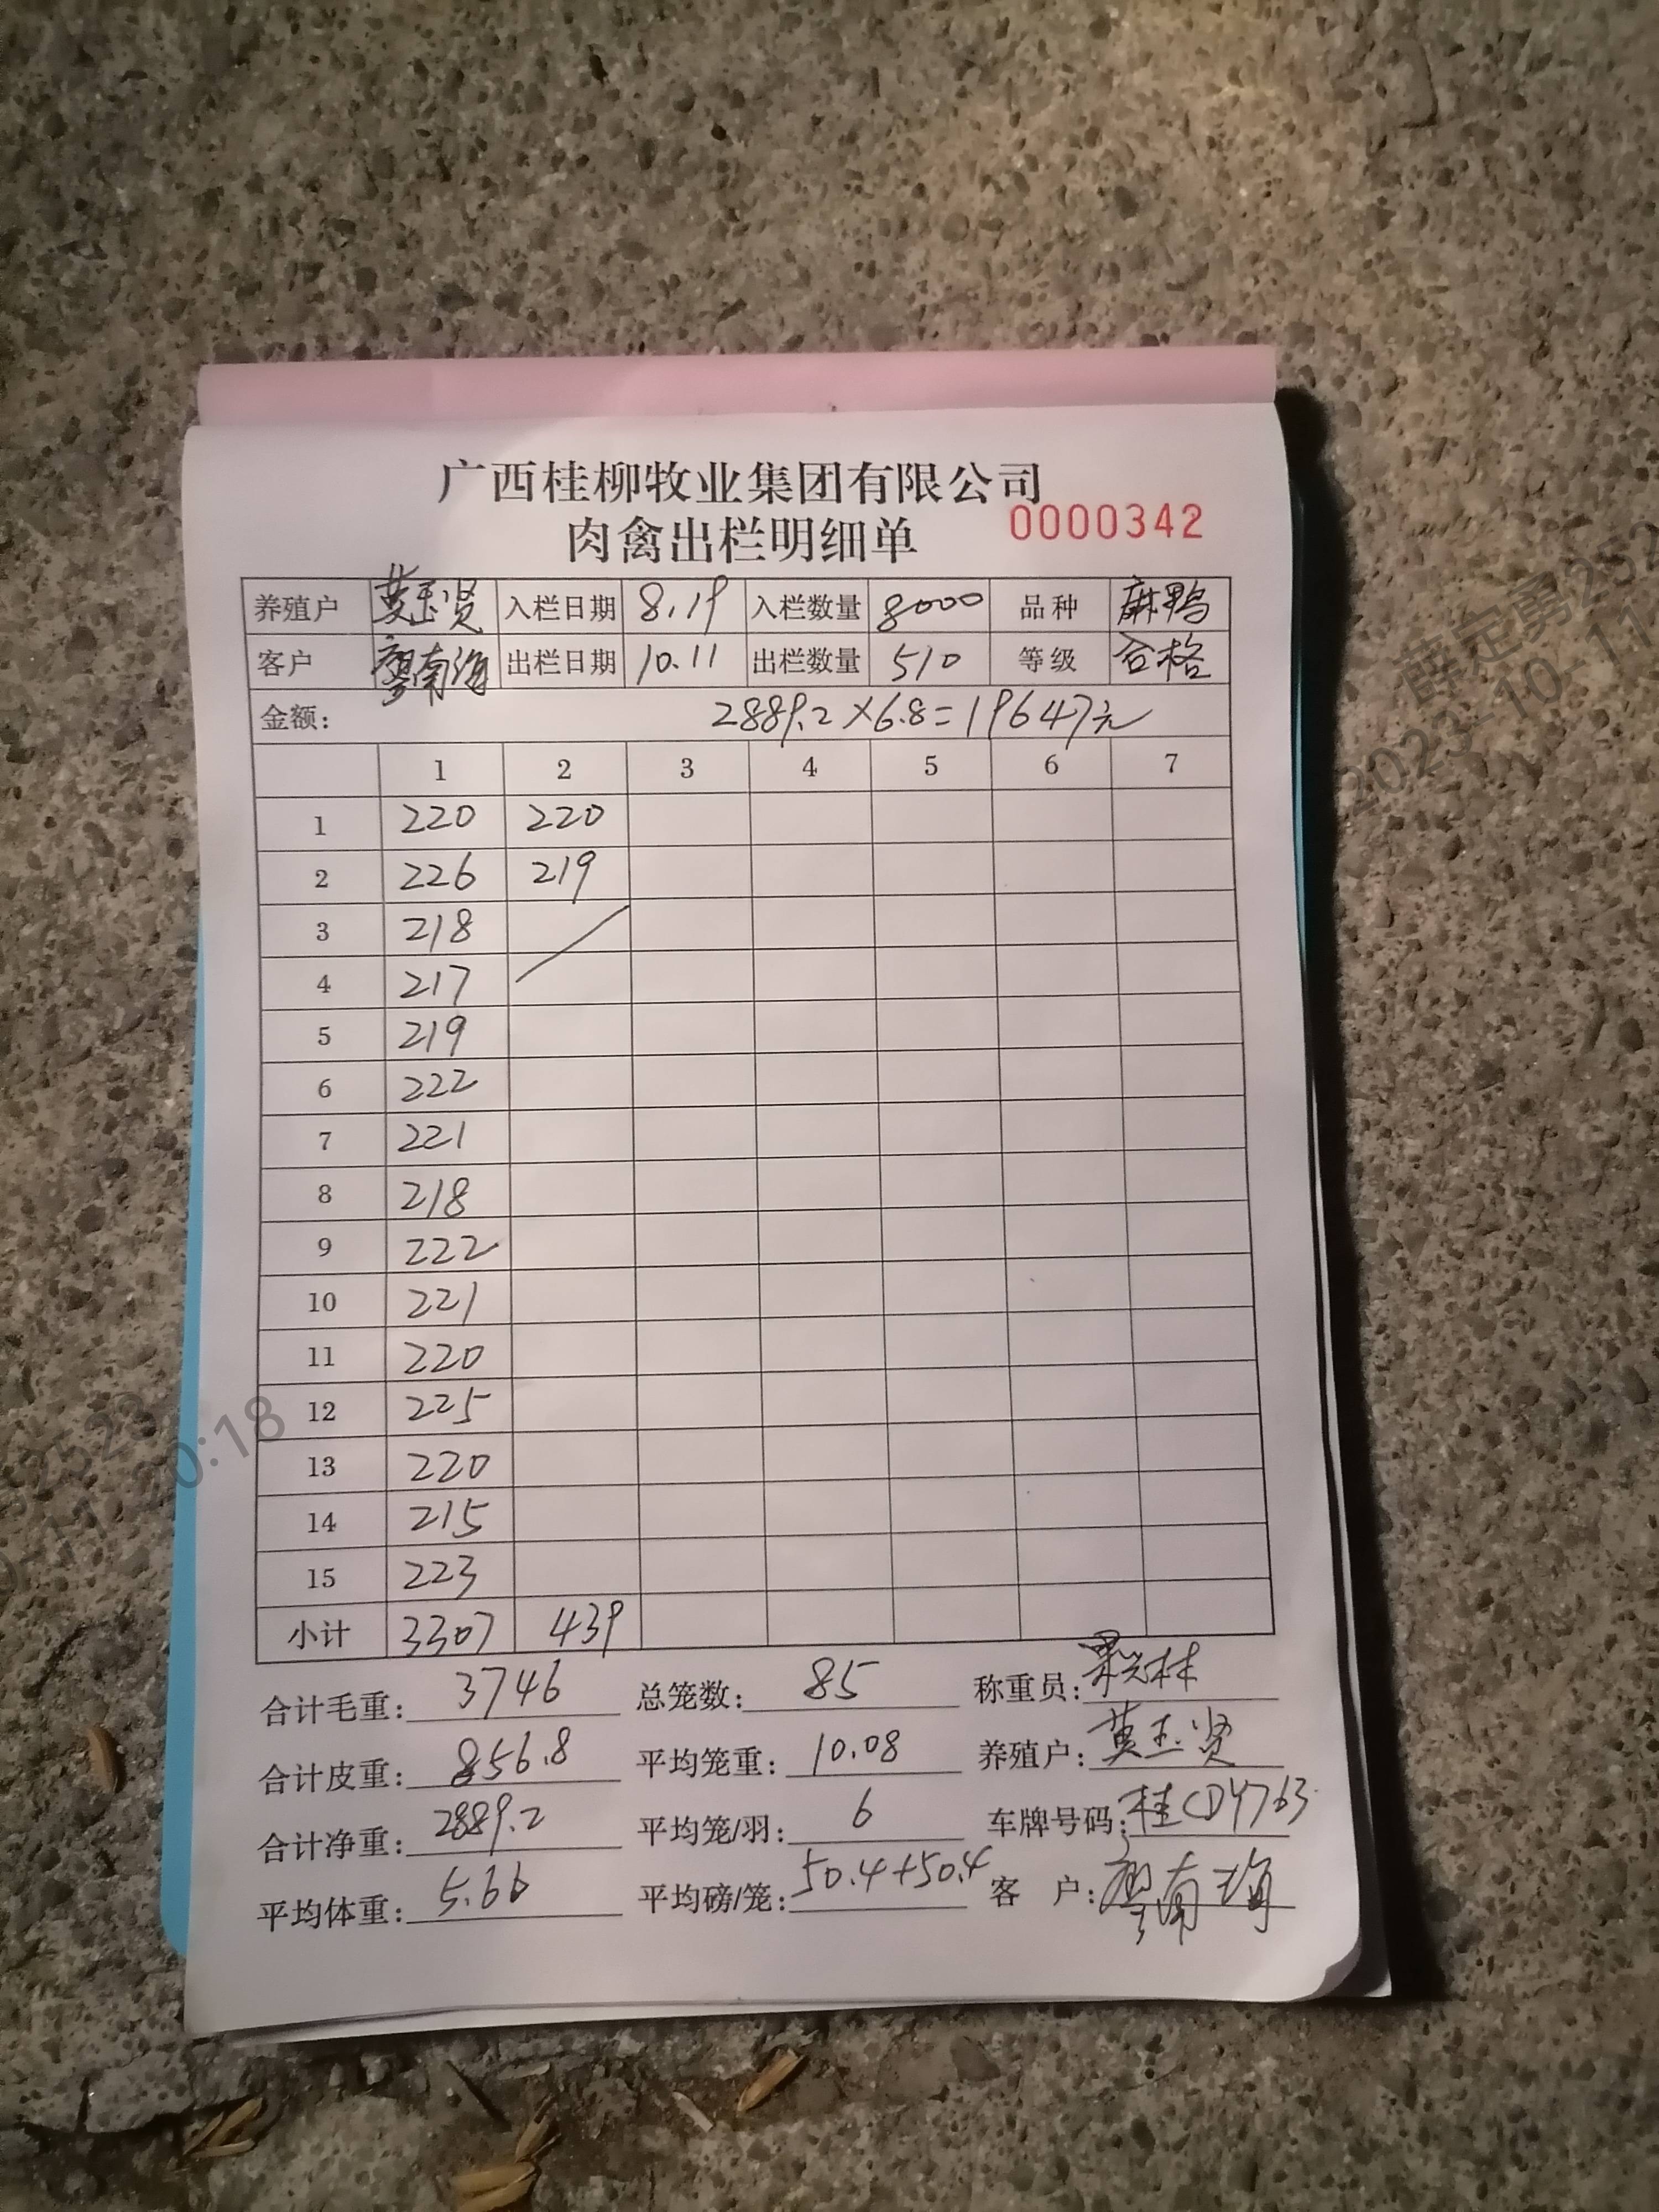 广西桂柳牧业集团有限公司
肉禽出栏明细单 0000342
养殖户 黄玉贤 入栏日期 8.19 入栏数量 8000 品种 麻鸭
客户 廖南海 出栏日期 10.11 出栏数量 510 等级 合格
金额: 2889.2×6.8=19647元
1 2 3 4 5 6 7
1 220 220
2 226 219
3 218
4 217
5 219
6 222
7 221
8 218
9 222
10 221
11 220
12 225
13 220
14 215
15 223
小计 3307 439
合计毛重: 3746 总笼数: 85 称重员:
合计皮重: 856.8 平均笼重: 10.08 养殖户: 黄玉贤
合计净重: 2889.2 平均笼/羽: 6 车牌号码: 桂CDY763
平均体重: 5.66 平均磅/笼: 50.4+50.4 客户: 廖南海
薛定勇252
2023-10-11
2523
20:18